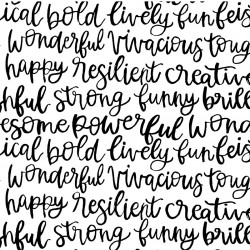 ical bold lively fun feis
wonderful vivacious toug
happy resilient creativ
hful strong funny brill
esome powerful wond
ical bold lively fun feis
wonderful vivacious toug
happy resilient creativ